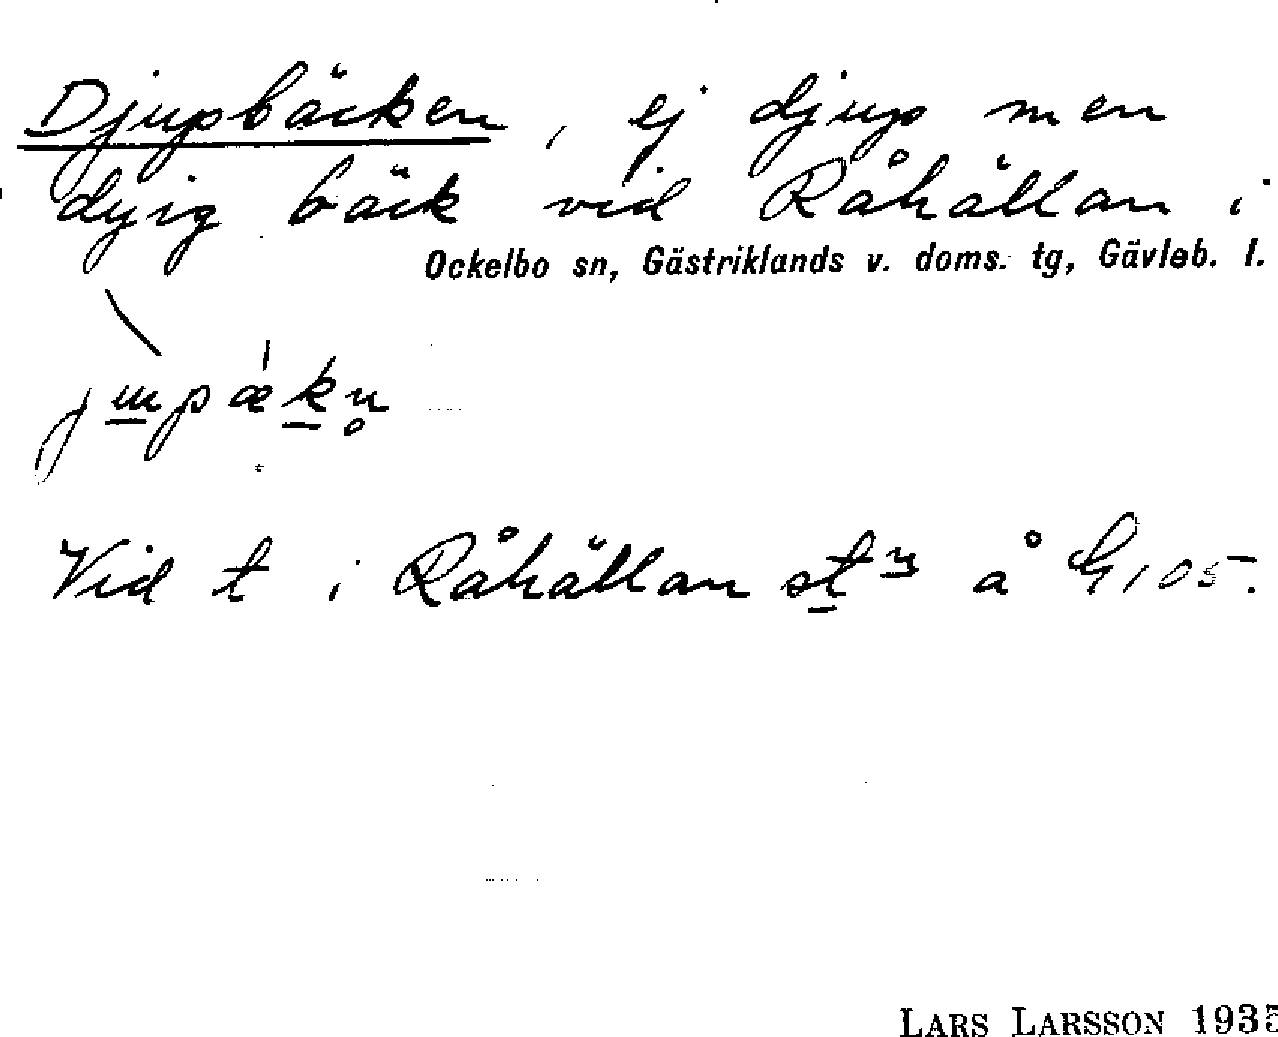 Djupbäcken, ej djup men
dyig bäck vid Råhällan i
Ockelbo sn, Gästriklands v. doms. tg, Gävleb. l.
Vid t i Råhällan stn å G 105.
LARS LARSSON 1935